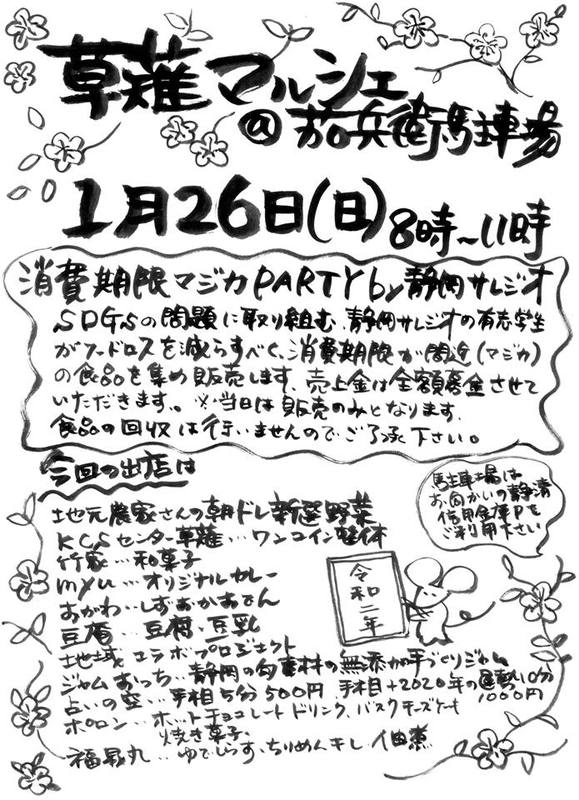 草薙マルシェ
@茄兵衛駐車場
1月26日(日)8時~11時
消費期限マジカPARTY by静岡サレジオ
SDGsの問題に取り組む、静岡サレジオの有志学生
がフードロスを減らすべく、消費期限が間近(マジカ)
の食品を集め販売します、売上金は全額募金させて
いただきます。※当日は販売のみとなります。
食品の回収は行いませんのでご了承下さい。
今回の出店は
駐車場は
お向かいの静清
信用金庫Pを
ご利用下さい
地元農家さんの朝ドレ新鮮野菜
KCSセンター草薙…ワンコイン整体
竹家…和菓子
myu…オリジナルカレー
おがわ…しずおかおでん
豆庵…豆腐、豆乳
地域コラボプロジェクト
ジャムおっち…静岡の旬素材の無添加手づくりジャム
占いの空…手相5分500円 手相+2020年の運勢10分
1000円
ポロン…ホットチョコレートドリンク、バスクチーズケーキ
焼き菓子、
福昇丸…ゆでしらす、ちりめん、干し、佃煮
令和二年